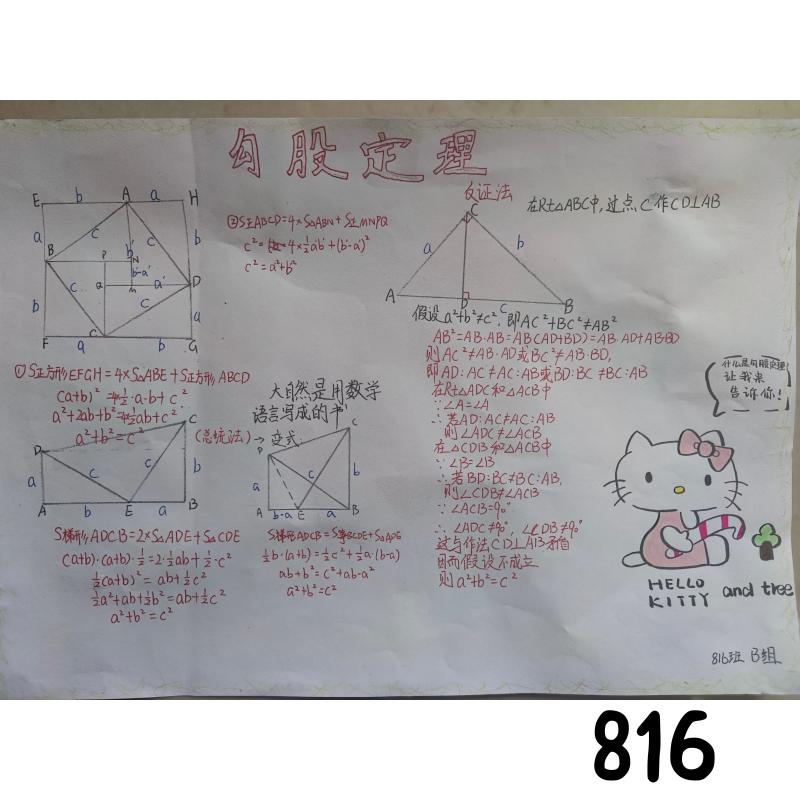 勾股定理
E b A a H
a c c b
B P b' N D
Q b'-a' M a'
b c c a
F a C b G
②S正ABCD=4×S△ABN+S正MNPQ
c²=4×½a'b'+(b'-a')²
c²=a'²+b'²
①S正方形EFGH=4×S△ABE+S正方形ABCD
(a+b)²=4·½·a·b+c²
a²+2ab+b²=4½ab+c²
a²+b²=c²
(总统法)→变式
D C
a c c b
A b E a B
S梯形ADCB=2×S△ADE+S△CDE
(a+b)·(a+b)·½=2·½ab+½·c²
½(a+b)²=ab+½c²
½a²+ab+½b²=ab+½c²
a²+b²=c²
大自然是用数学
语言写成的书
C
a c c b
A b-a E a B
½b·(a+b)=½c²+½a·(b-a)
ab+b²=c²+ab-a²
a²+b²=c²
反证法
在Rt△ABC中,过点C作CD⊥AB
C
a b
A D c B
假设a²+b²≠c²,即AC²+BC²≠AB²
AB²=AB·AB=AB(AD+BD)=AB·AD+AB·BD
则AC²≠AB·AD或BC²≠AB·BD,
即AD:AC≠AC:AB或BD:BC≠BC:AB
在Rt△ADC和△ACB中
∵∠A=∠A
∴若AD:AC≠AC:AB
则∠ADC≠∠ACB
在△CDB和△ACB中
∵∠B=∠B
∴若BD:BC≠BC:AB,
则∠CDB≠∠ACB
∵∠ACB=90°
∴∠ADC≠90°,∠CDB≠90°
这与作法CD⊥AB矛盾
因而假设不成立
则a²+b²=c²
什么是勾股定理?
让我来
告诉你!
HELLO
KITTY
and tree
816班 B组
816